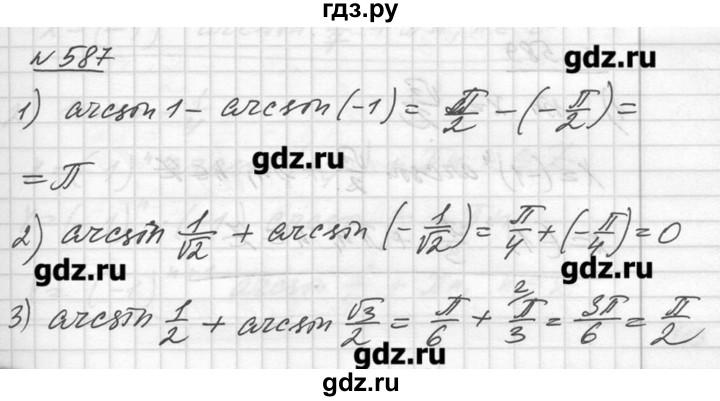 гдз.ру
№587
gdz.ru
1) arcsin 1 - arcsin (-1) = π/2 - (-π/2) =
gdz.ru
= π
gdz.ru
2) arcsin 1/√2 + arcsin (-1/√2) = π/4 + (-π/4) = 0
gdz.ru
gdz.ru
3) arcsin 1/2 + arcsin √3/2 = π/6 + ²π/3 = 3π/6 = π/2
gdz.ru
gdz.ru
gdz.ru